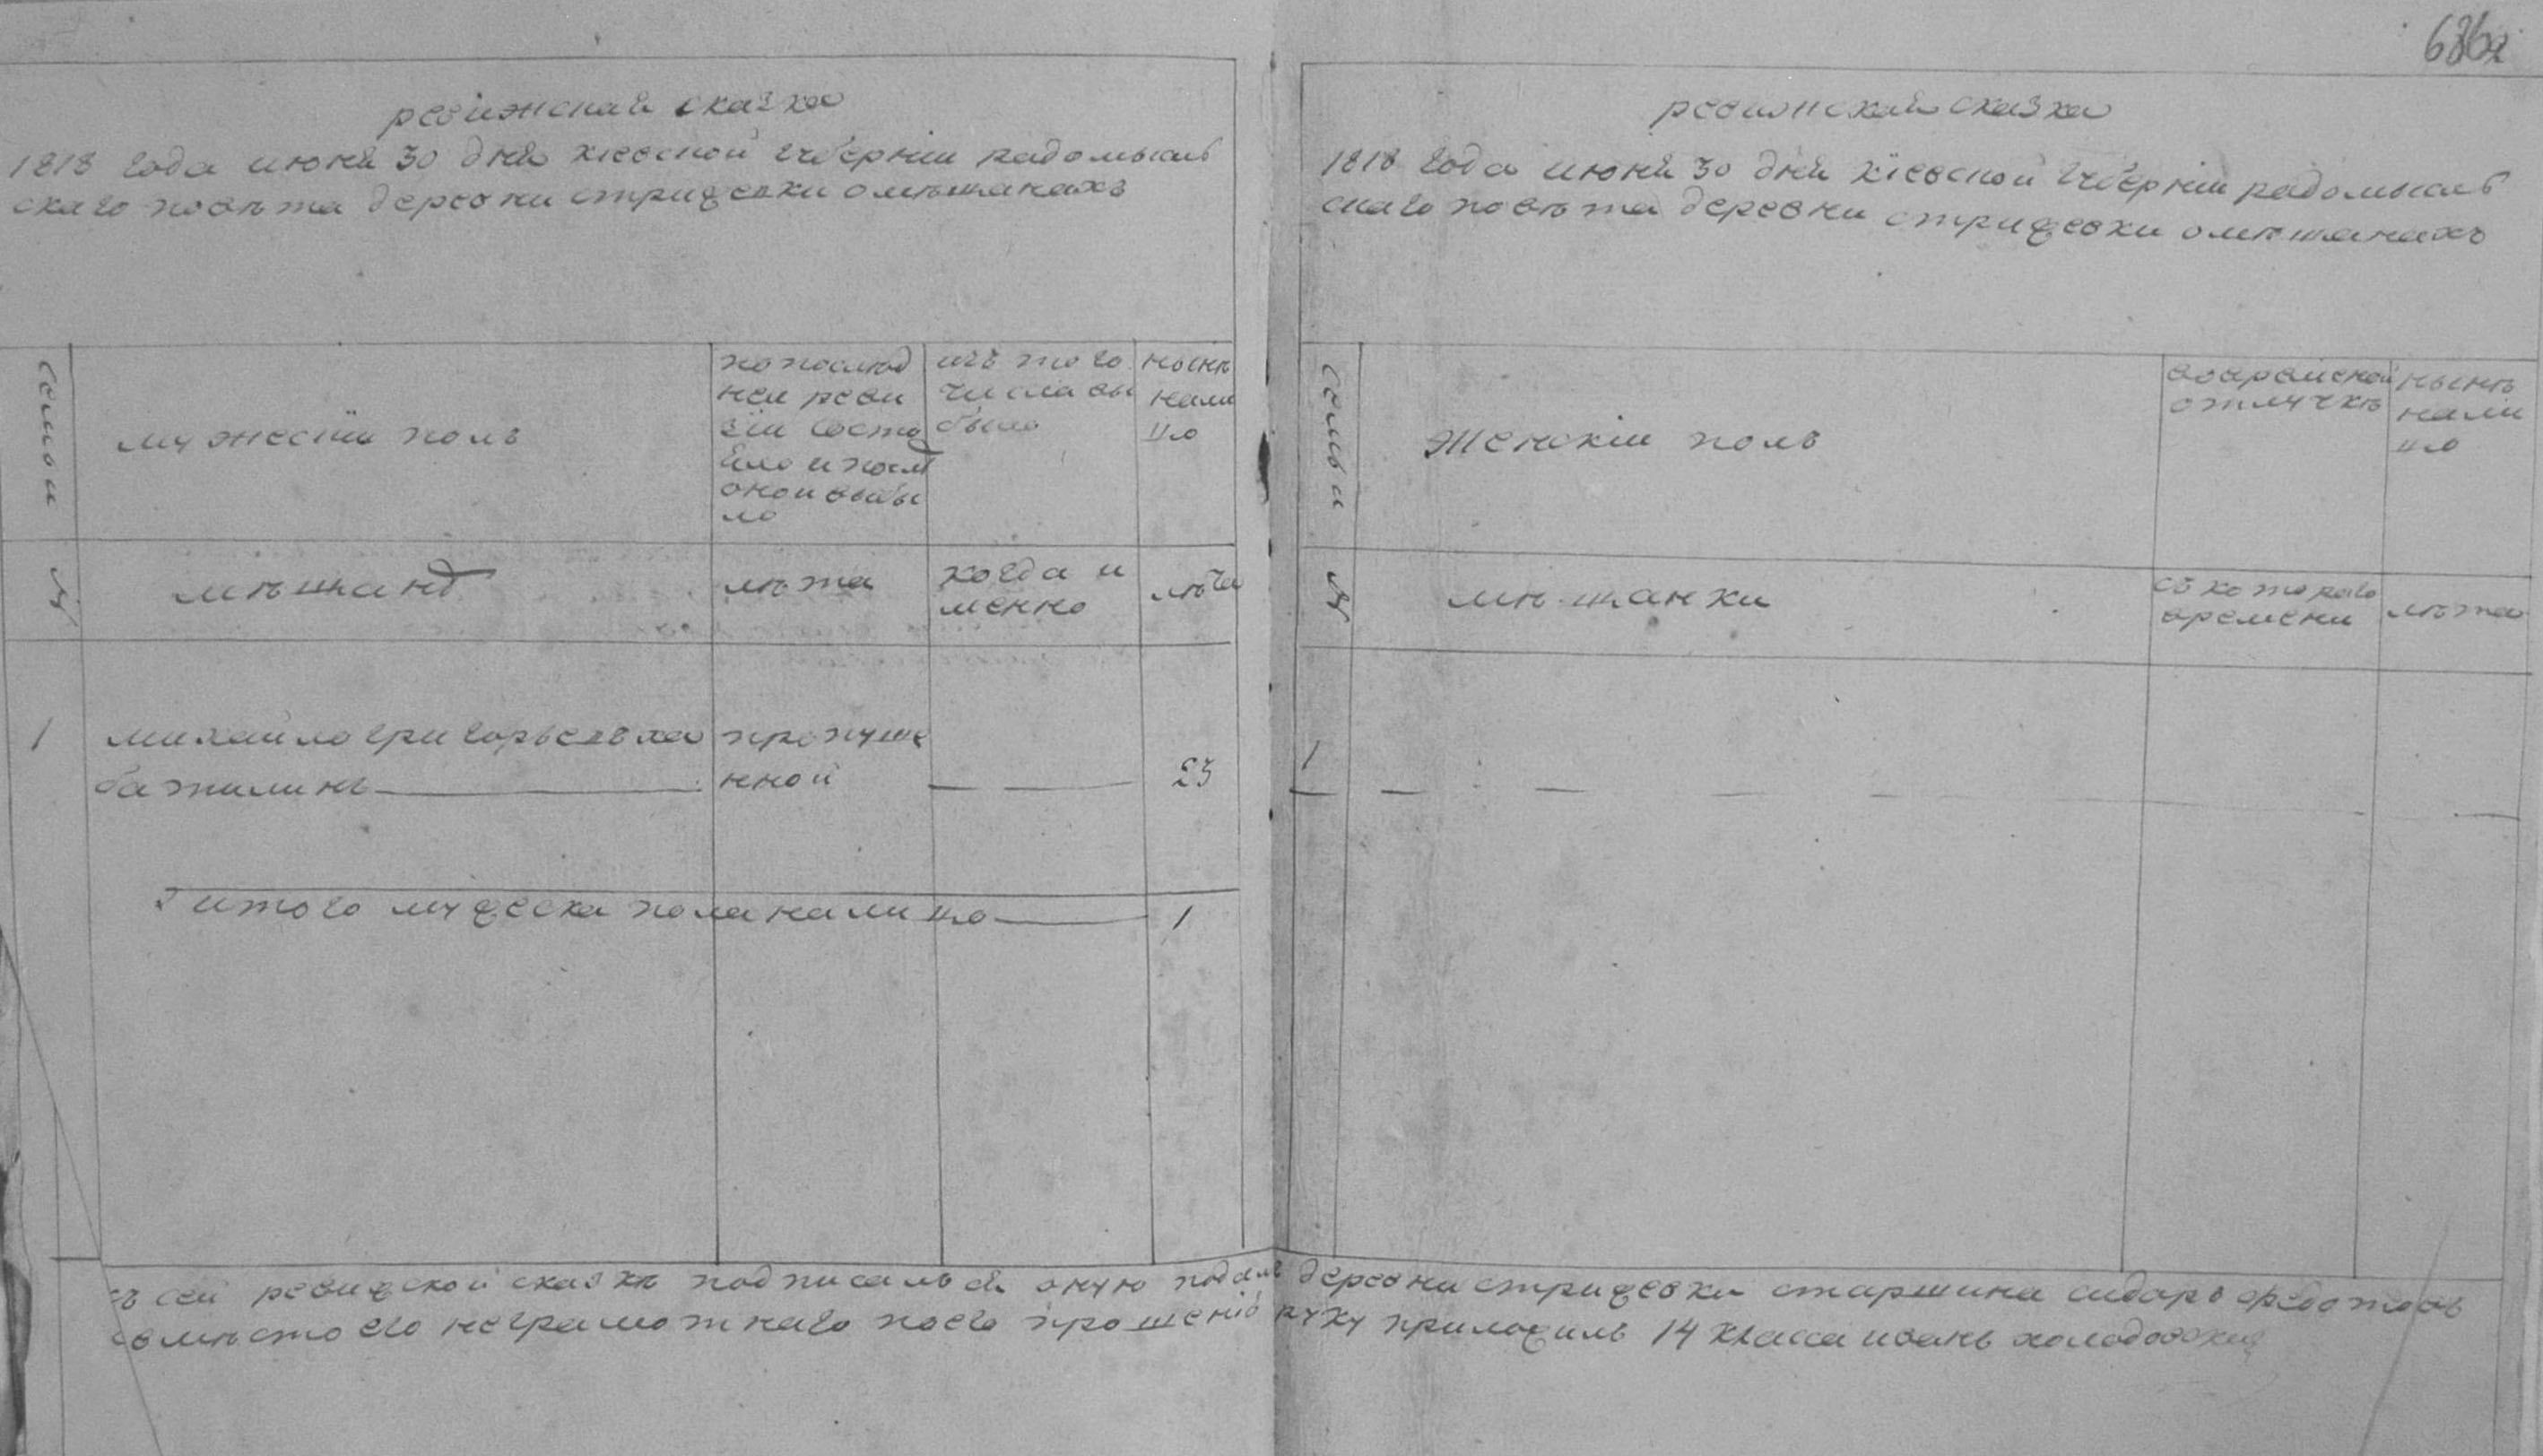 636
ревижская сказка
1818 года июня 30 дня киевской губернии радомысль
скаго повѣта деревни стрижевки о мѣщанахъ
семьи
мужески полъ
по послѣд
ней реви
зіи состо
яло и послѣ
оной выбы
ло
изъ того
числа вы
было
нынѣ
нали
цо
№
мѣщанѣ
лѣта
когда и
менно
лѣта
1
михаило григорьевъ
пропуще
нной
23
итого мужеска пола налицо
1
ревижская сказка
1818 года июня 30 дня кіевской губерніи радомысль
скаго повѣта деревни стрижевки о мѣщанахъ
семьи
женскіи полъ
вовременой
отлучкѣ
нынѣ
нали
цо
№
мѣщанки
съ котораго
времени
лѣта
1
къ сей ревижской сказкѣ подписался оную подалъ деревни стрижевки старшина сидоръ федотовъ
вмѣсто его неграмотнаго по его прошенію руку приложилъ 14 класса иванъ холодовский